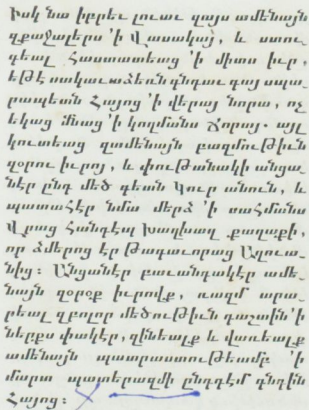 Իսկ նա իբրեւ լուաւ զայս ամենայն
զքաջալերս 'ի Վասակայ, և ստու-
գեալ հաստատեաց 'ի միտս իւր,
եթէ սակաւաձեռն գնդաւ գայ սպա-
րապետն Հայոց 'ի վերայ նորա, ոչ
եկաց մնաց 'ի կողմանս Ճորայ. այլ
կուտեաց զամենայն բազմութիւն
զօրու իւրոյ, և փութանակի անցա-
նէր ընդ մեծ գետն Կուր անուն, և
պատահէր նմա մերձ 'ի սահմանս
Վրաց հանդէպ Խաղխաղ քաղաքի,
որ ձմերոց էր թագաւորաց Աղուա-
նից։ Անցանէր բաւանդակէր ամե-
նայն զօրօք իւրովք, ռազմ արա-
րեալ զբոլոր մեծութիւն դաշտին 'ի
ներքս փակէր, զինեալք և վառեալք
ամենայն պատրաստութեամբ 'ի
մարտ պատերազմի ընդդէմ գնդին
Հայոց։